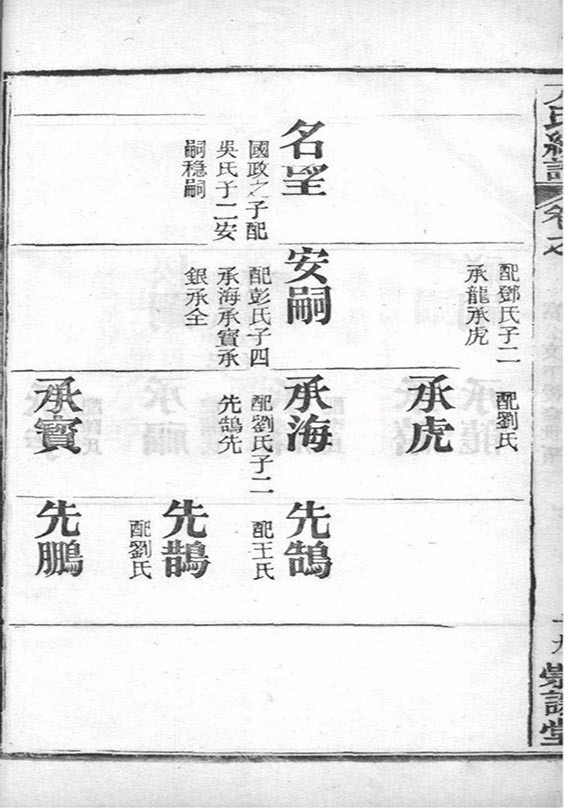 名望
國政之子配
吳氏子二安
嗣穩嗣
配鄧氏子二
承龍承虎
安嗣
配彭氏子四
承海承寶承
銀承全
配劉氏
承虎
承海
配劉氏子二
先鵠先
承寶
先鵠
配王氏
先鵲
配劉氏
先鵬